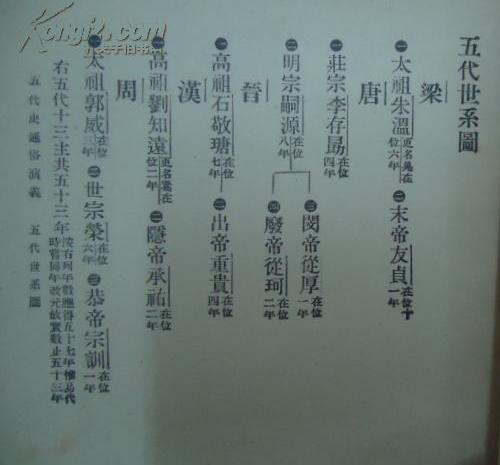 五代世系圖
梁
㊀太祖朱溫更名晃在位六年 ㊁末帝友貞在位十一年
唐
㊀莊宗李存勗在位四年
㊁明宗嗣源在位八年
㊂閔帝從厚在位一年
㊃廢帝從珂在位二年
晉
㊀高祖石敬瑭在位七年 ㊁出帝重貴在位四年
漢
㊀高祖劉知遠更名暠在位二年 ㊁隱帝承祐在位二年
周
㊀太祖郭威在位三年 ㊁世宗榮在位六年 ㊂恭帝宗訓在位一年
右五代十三主共五十三年按右列年數應得五十七年惟易代時嘗同年改元故實數止五十三年
五代史通俗演義 五代世系圖
Kongfz.com
孔夫子旧书网